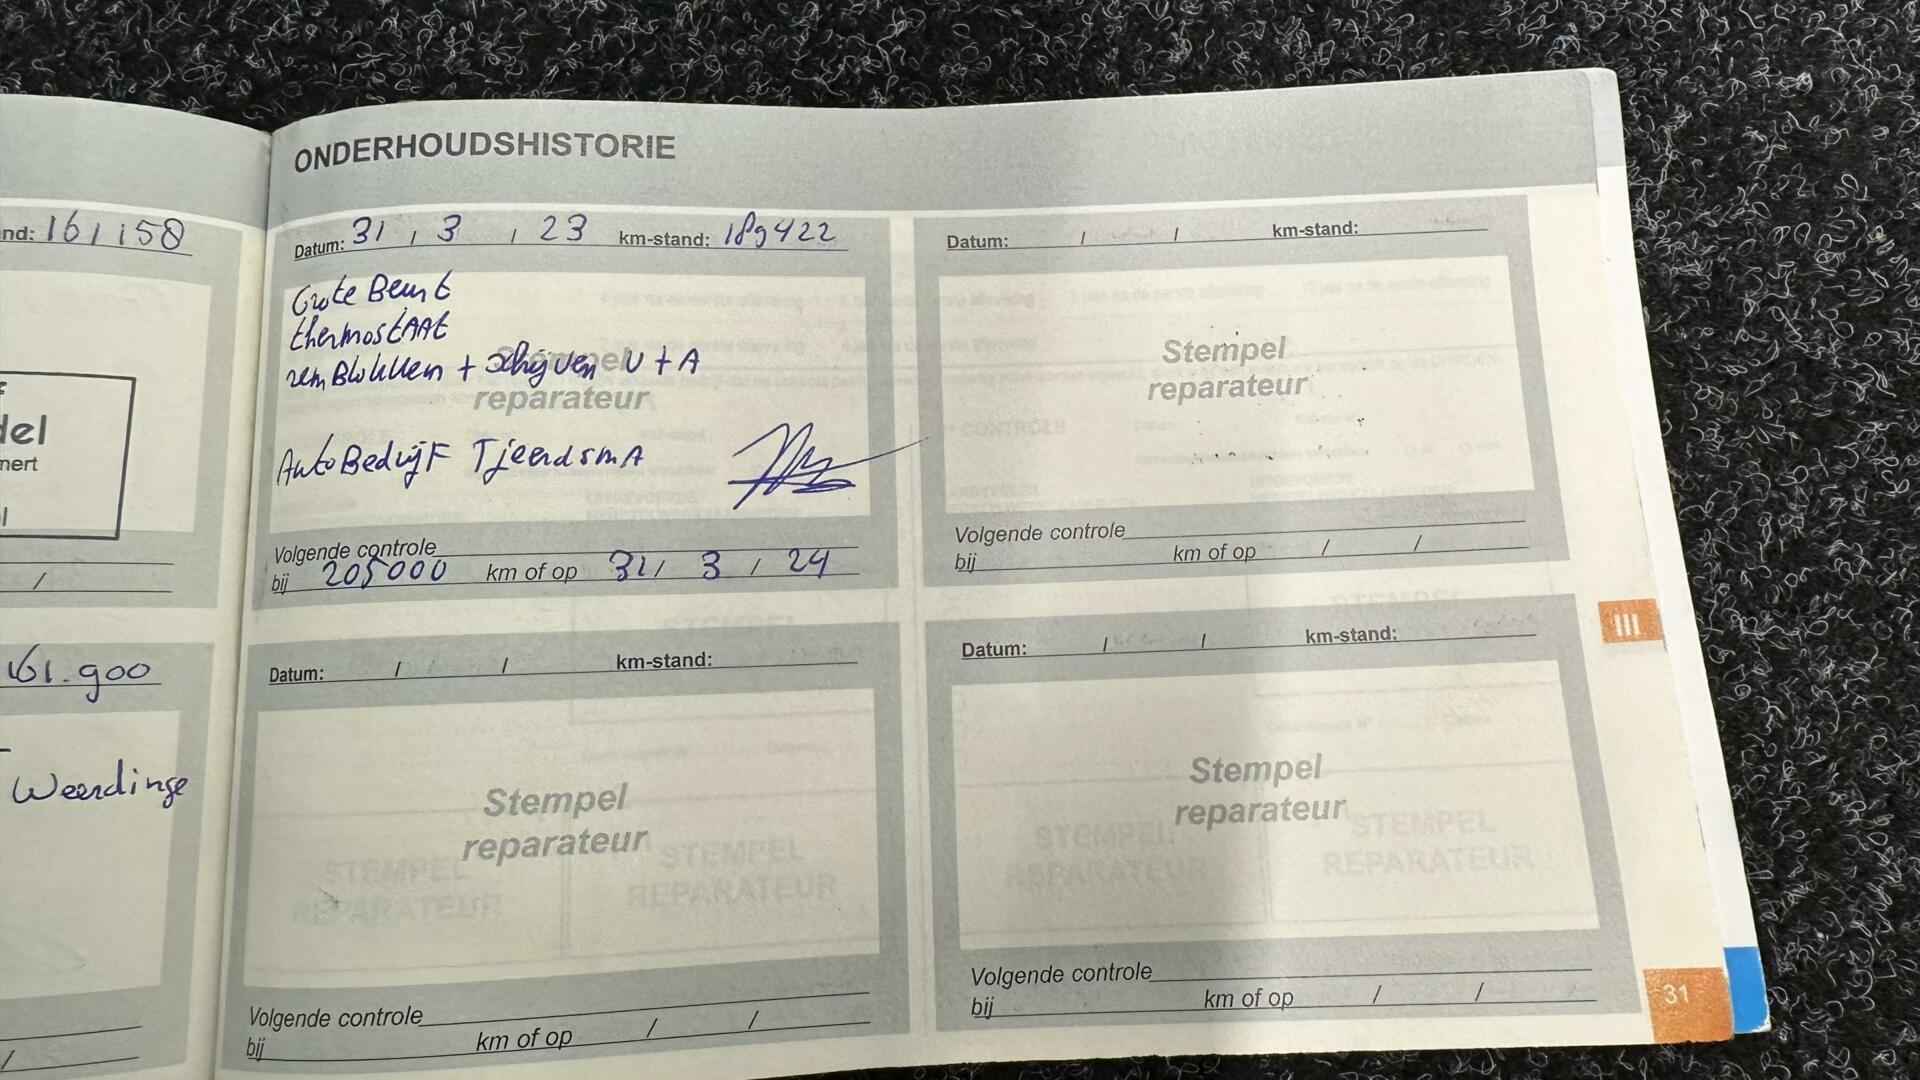 nd: 161158
del
mert
/
161.900
Weerdinge
/
ONDERHOUDSHISTORIE
Datum: 31 / 3 / 23 km-stand: 189422
Grote Beurt
thermostAAt
remBlokken + schijven V + A
Stempel
reparateur
AutoBedrijf TjeerdsmA
Volgende controle
bij 205000 km of op 31 / 3 / 24
Datum: / / km-stand:
Stempel
reparateur
Volgende controle
bij km of op / /
Datum: / / km-stand:
Stempel
reparateur
Volgende controle
bij km of op / /
Datum: / / km-stand:
Stempel
reparateur
Volgende controle
bij km of op / /
III
31
STEMPEL
REPARATEUR
STEMPEL
REPARATEUR
STEMPEL
REPARATEUR
STEMPEL
REPARATEUR